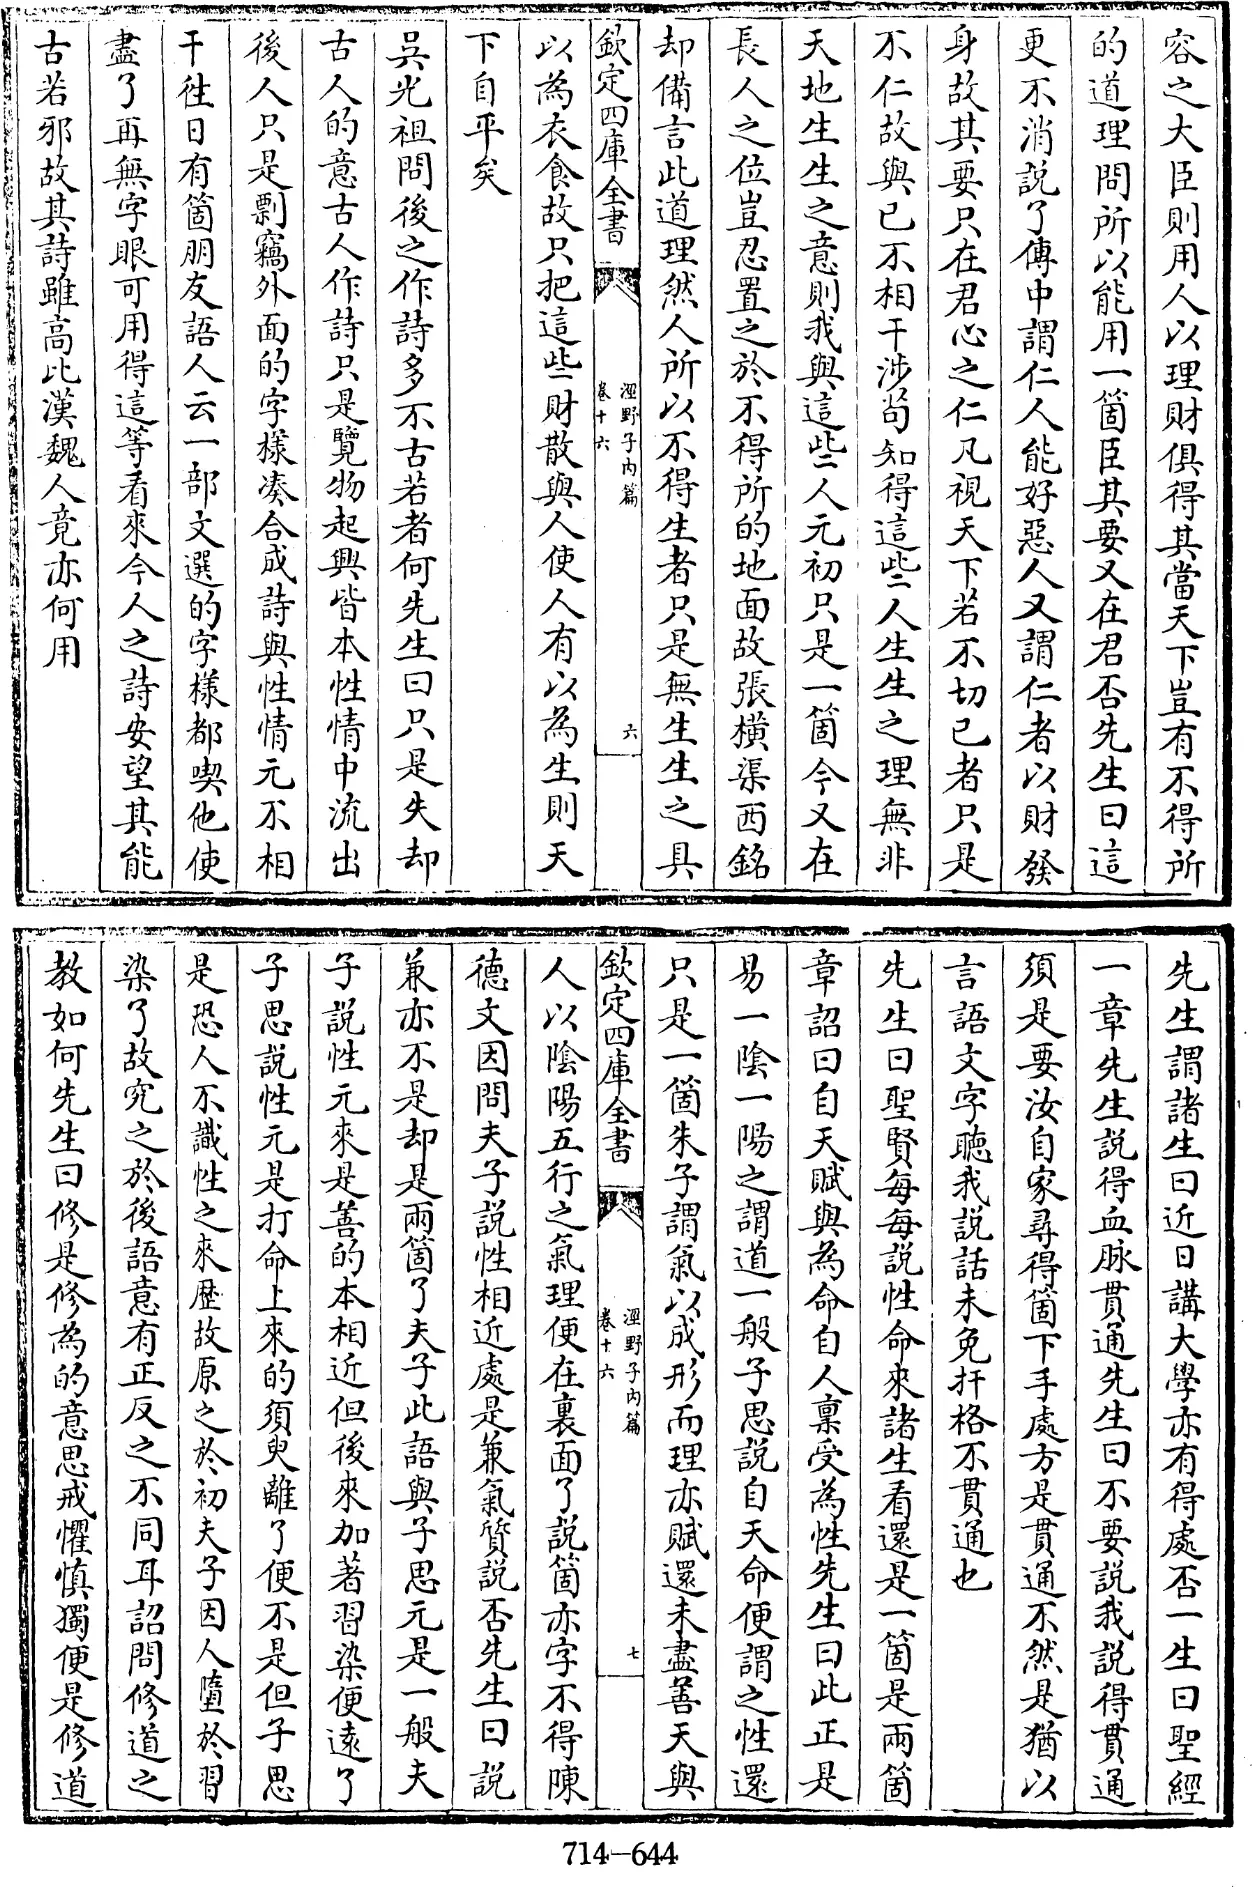 容之大臣則用人以理財俱得其當天下豈有不得所
的道理問所以能用一箇臣其要又在君否先生曰這
更不消説了傳中謂仁人能好惡人又謂仁者以財發
身故其要只在君心之仁凡視天下若不切已者只是
不仁故與已不相干涉茍知得這些人生生之理無非
天地生生之意則我與這些人元初只是一箇今又在
長人之位豈忍置之於不得所的地面故張横渠西銘
却備言此道理然人所以不得生者只是無生生之具
欽定四庫全書
涇野子内篇
卷十六
六
以為衣食故只把這些財散與人使人有以為生則天
下自平矣
吳光祖問後之作詩多不古若者何先生曰只是失却
古人的意古人作詩只是覽物起興皆本性情中流出
後人只是剽竊外面的字様凑合成詩與性情元不相
干徃日有箇朋友語人云一部文選的字様都喫他使
盡了再無字眼可用得這等看來今人之詩安望其能
古若邪故其詩雖高比漢魏人竟亦何用
先生謂諸生曰近日講大學亦有得處否一生曰聖經
一章先生説得血脉貫通先生曰不要説我説得貫通
須是要汝自家尋得箇下手處方是貫通不然是猶以
言語文字聽我説話未免扞格不貫通也
先生曰聖賢每每説性命來諸生看還是一箇是兩箇
章詔曰自天賦與為命自人稟受為性先生曰此正是
易一陰一陽之謂道一般子思説自天命便謂之性還
只是一箇朱子謂氣以成形而理亦賦還未盡善天與
欽定四庫全書
涇野子内篇
卷十六
七
人以陰陽五行之氣理便在裏面了説箇亦字不得陳
徳文因問夫子説性相近處是兼氣質説否先生曰説
兼亦不是却是兩箇了夫子此語與子思元是一般夫
子説性元來是善的本相近但後來加著習染便遠了
子思説性元是打命上來的須臾離了便不是但子思
是恐人不識性之來歴故原之於初夫子因人墮於習
染了故究之於後語意有正反之不同耳詔問修道之
教如何先生曰修是修為的意思戒懼慎獨便是修道
714-644